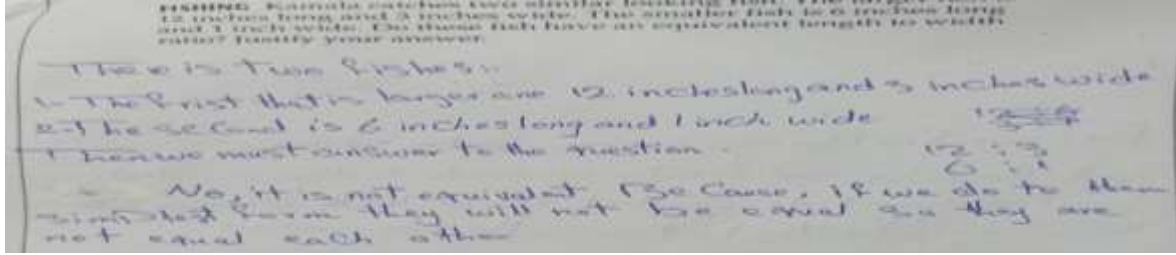 FISHING Kamala catches two similar looking fish. The larger fish is
12 inches long and 3 inches wide. The smaller fish is 6 inches long
and 1 inch wide. Do these fish have an equivalent length to width
ratio? Justify your answer.
There is Two fishes:.
1- The frist that is larger one 12 inches long and 3 inches wide
2- The second is 6 inches long and 1 inch wide
Then we must answer to the question.
12 : 3
6 : 1
No, it is not equivalent, Because, if we do to them
simplest form they will not be equal so they are
not equal each other